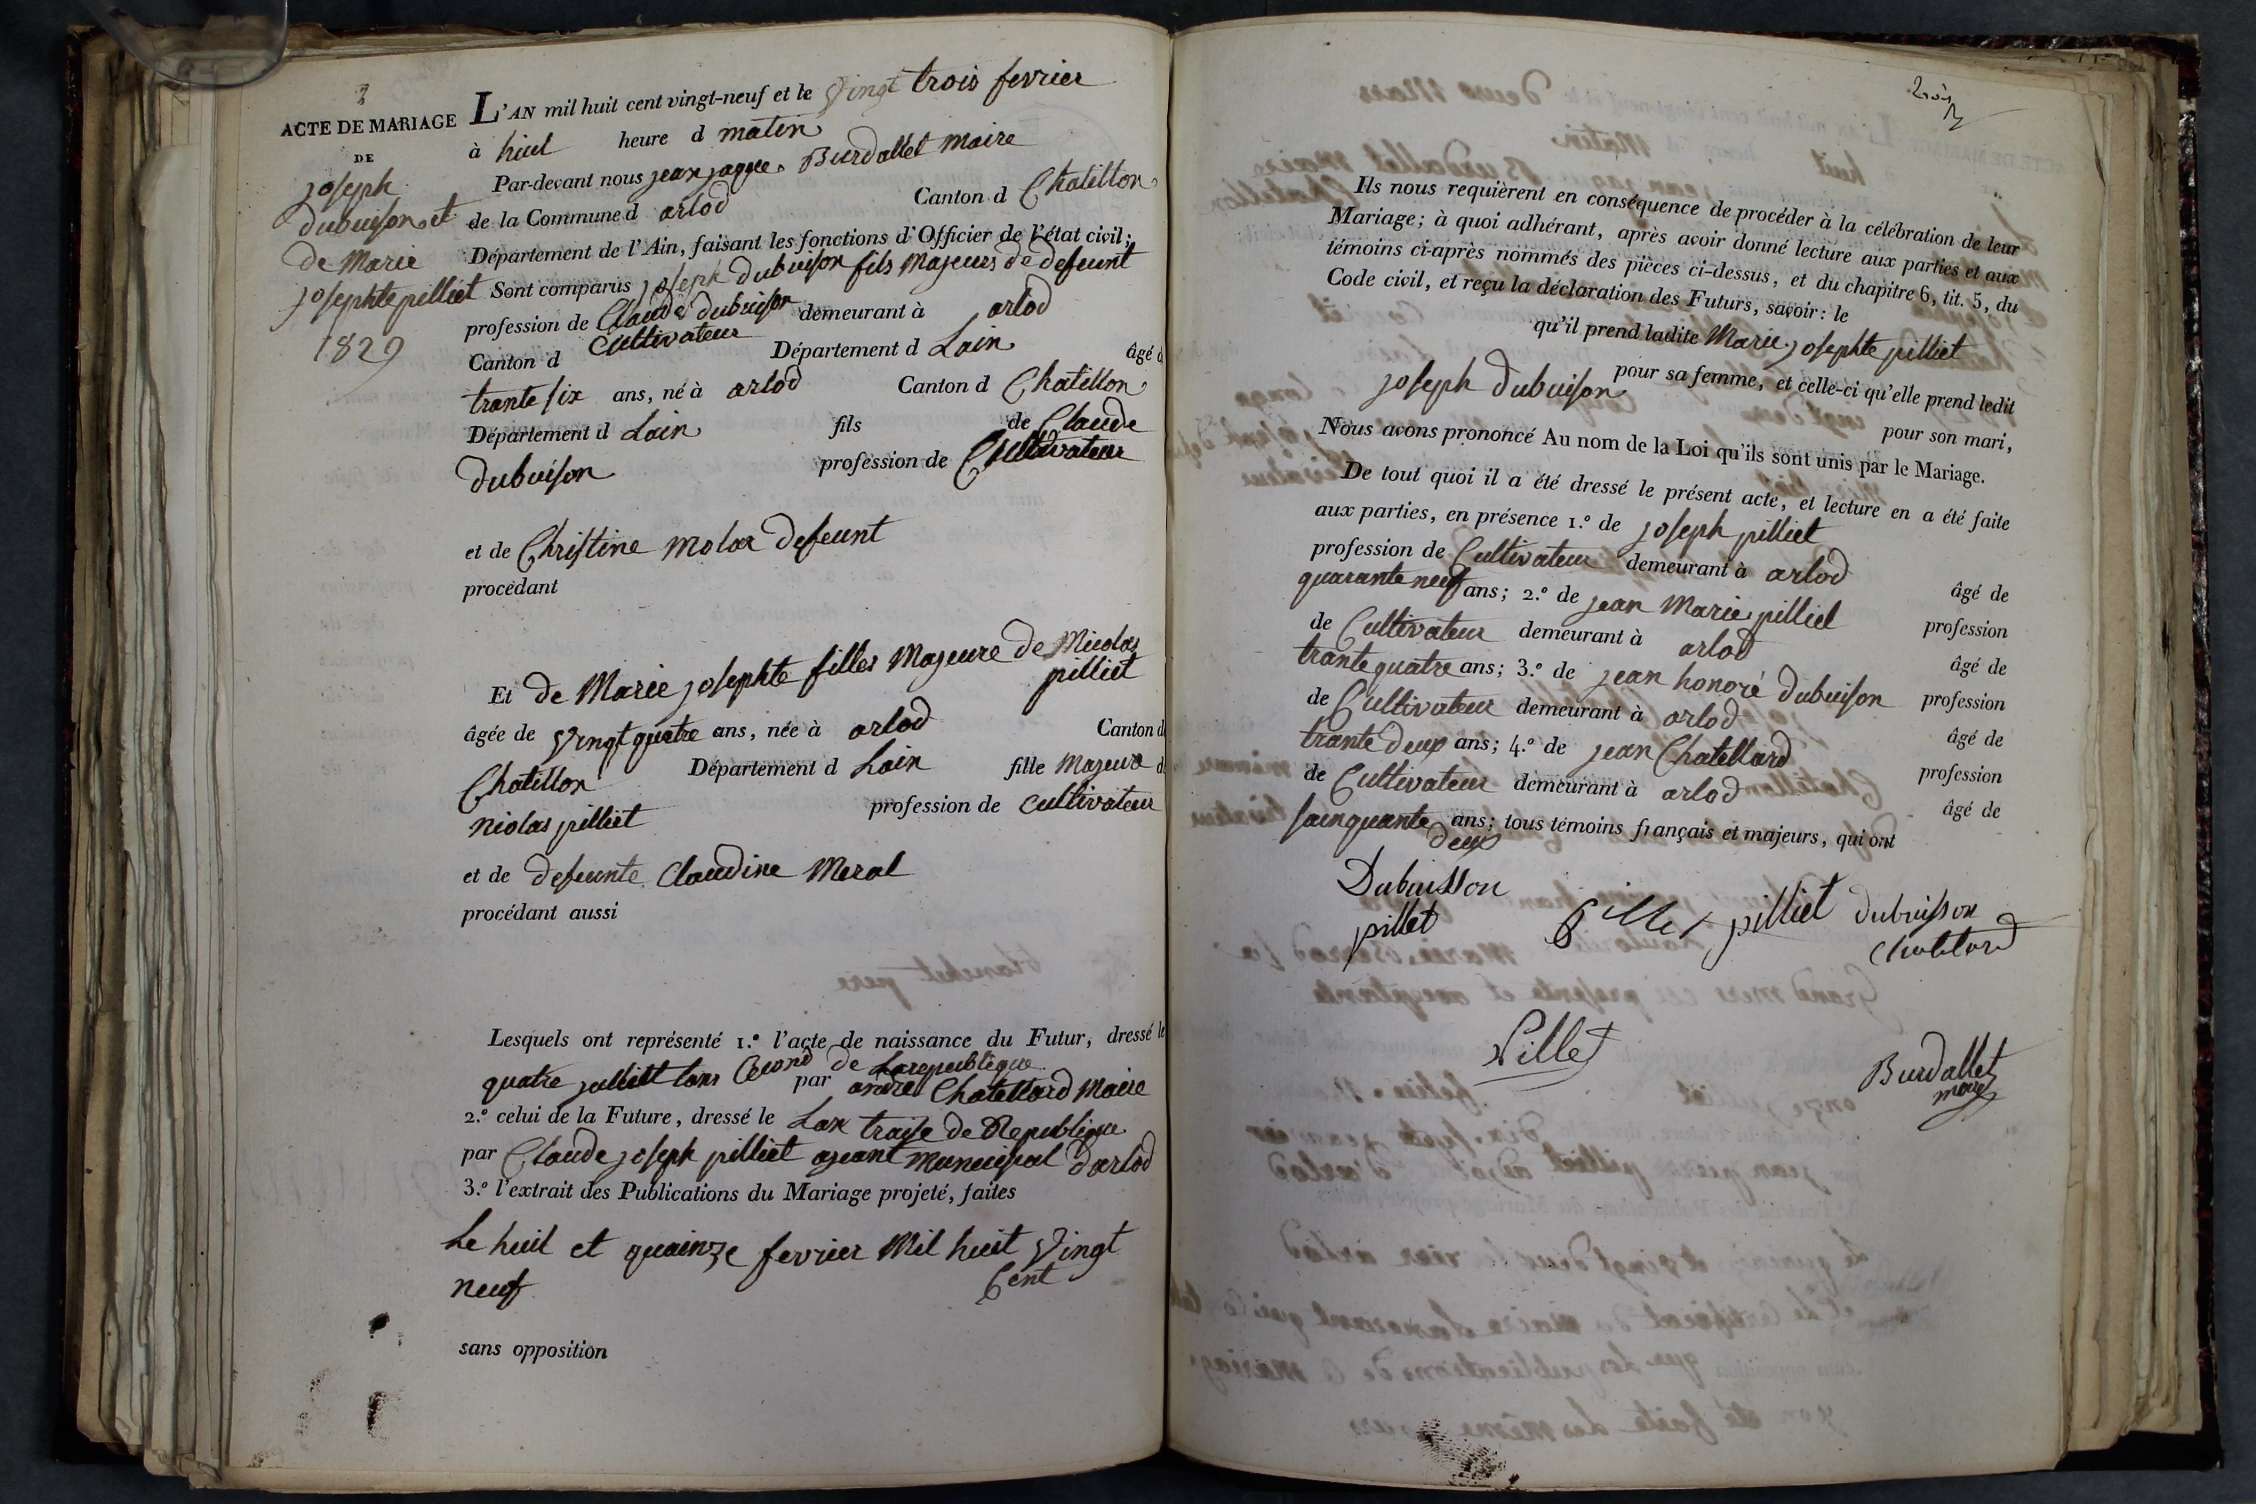 2
ACTE DE MARIAGE
DE
joseph
dubuison et
de Marie
josephte pilliet
1829
L'AN mil huit cent vingt-neuf et le vingt trois fevrier
à huit heure d matin
Par-devant nous jean jaque Burdallet maire
de la Commune d arlod Canton d Chatillon
Département de l'Ain, faisant les fonctions d'Officier de l'état civil;
Sont comparus joseph dubuison fils majeurs de defeunt
profession de Claude dubuison demeurant à arlod
cultivateur
Canton d Département d Lain âgé d
trante six ans, né à arlod Canton d Chatillon
Département d Lain fils de Claude
dubuison profession de Cultivateur
et de Christine molar defeunt
procédant
Et de Marie josephte filles Majeure de Nicolas
pilliet
âgée de vingt quatre ans, née à arlod Canton d
Chatillon Département d Lain fille majeure d
niolas pilliet profession de cultivateur
et de defeunte Claudine Meral
procédant aussi
Lesquels ont représenté 1.º l'acte de naissance du Futur, dressé le
quatre julliet lans Cecond de Larepublique
par andre Chatellard Maire
2.º celui de la Future, dressé le Lan traise de Republique
par Claude joseph pilliet ajeant municipal d'arlod
3.º l'extrait des Publications du Mariage projeté, faites
Le huit et quainze fevrier Mil huit vingt
neuf Cent
sans opposition
trois
3
Ils nous requièrent en conséquence de procéder à la célébration de leur
Mariage; à quoi adhérant, après avoir donné lecture aux parties et aux
témoins ci-après nommés des pièces ci-dessus, et du chapitre 6, tit. 5, du
Code civil, et reçu la déclaration des Futurs, savoir: le
qu'il prend ladite Marie josephte pilliet
pour sa femme, et celle-ci qu'elle prend ledit
joseph dubuison pour son mari,
Nous avons prononcé Au nom de la Loi qu'ils sont unis par le Mariage.
De tout quoi il a été dressé le présent acte, et lecture en a été faite
aux parties, en présence 1.º de joseph pilliet
profession de Cultivateur demeurant à arlod âgé de
quarante neuf ans; 2.º de jean Marie pilliet profession
de Cultivateur demeurant à arlod âgé de
trante quatre ans; 3.º de jean honoré dubuison profession
de Cultivateur demeurant à arlod âgé de
trante deux ans; 4.º de jean Chatellard profession
de Cultivateur demeurant à arlod âgé de
sainquante ans; tous témoins français et majeurs, qui ont
deux
Dubuisson
pillet pillet pilliet dubuisson
chatelard
Pillet
Burdallet
maire